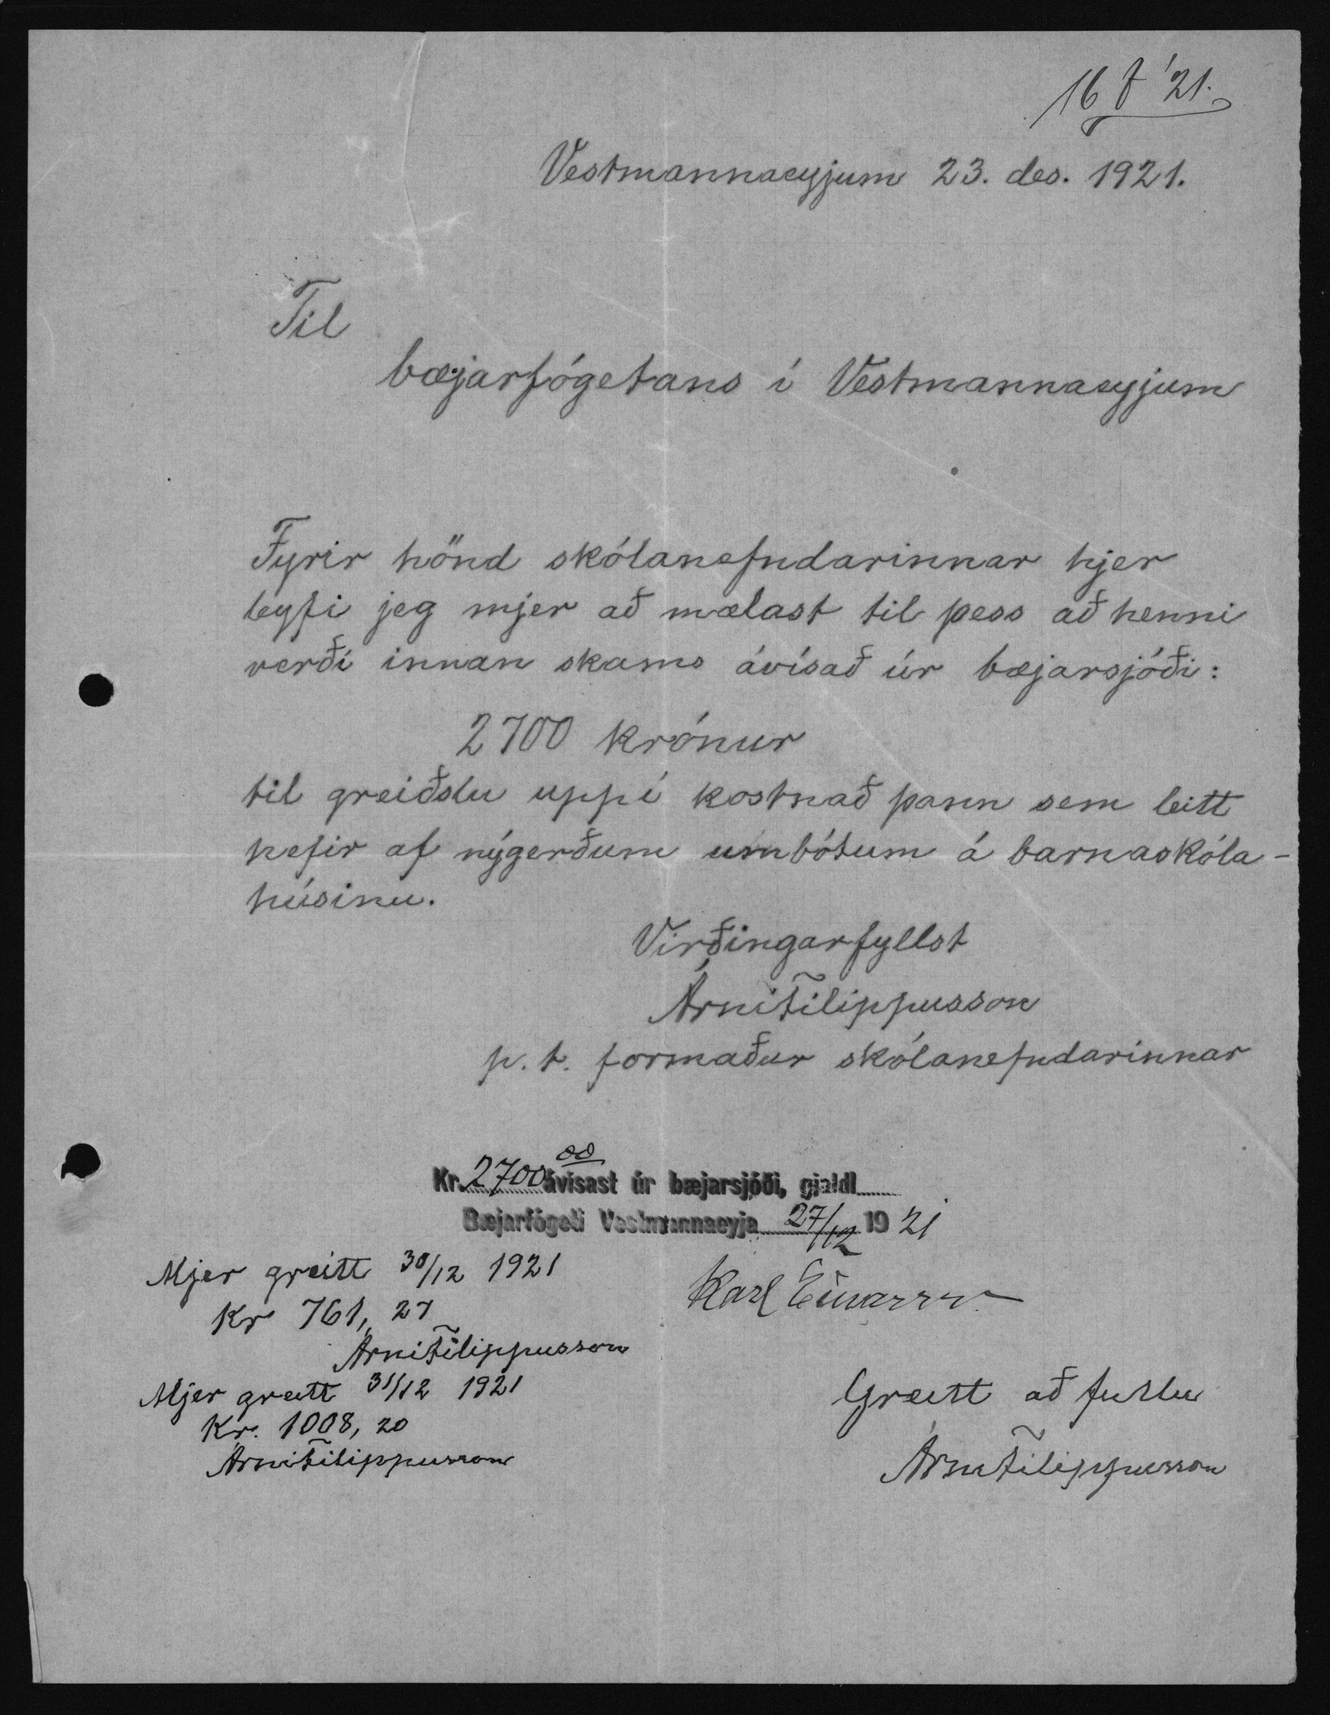 16 f '21.
Vestmannaeyjum 23. des. 1921.
Til
bæjarfógetans í Vestmannaeyjum
Fyrir hönd skólanefndarinnar hjer
leyfi jeg mjer að mælast til þess að henni
verði innan skams ávísað úr bæjarsjóði:
2700 krónur
til greiðslu uppí kostnað þann sem leitt
hefir af nýgerðum umbótum á barnaskóla-
húsinu.
Virðingarfyllst
Árni Filippusson
p.t. formaður skólanefndarinnar
Kr. 2700 00 ávísast úr bæjarsjóði, gjaldl
Bæjarfógeti Vestmannaeyja 27/12 1921
Karl Einarsson
Mjer greitt 30/12 1921
Kr 761, 27
Árni Filippusson
Mjer greitt 31/12 1921
Kr. 1008, 20
Árni Filippusson
Greitt að fullu
Árni Filippusson